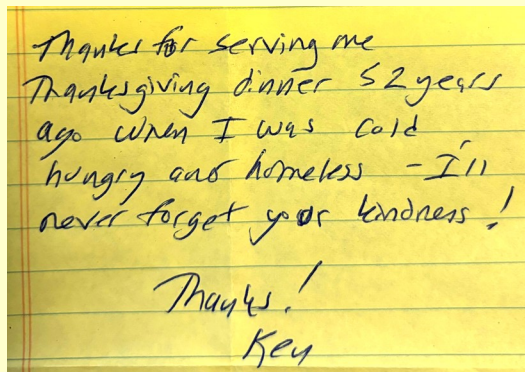 Thanks for serving me
Thanksgiving dinner 52 years
ago when I was cold
hungry and homeless - I'll
never forget your kindness!
Thanks!
Ken